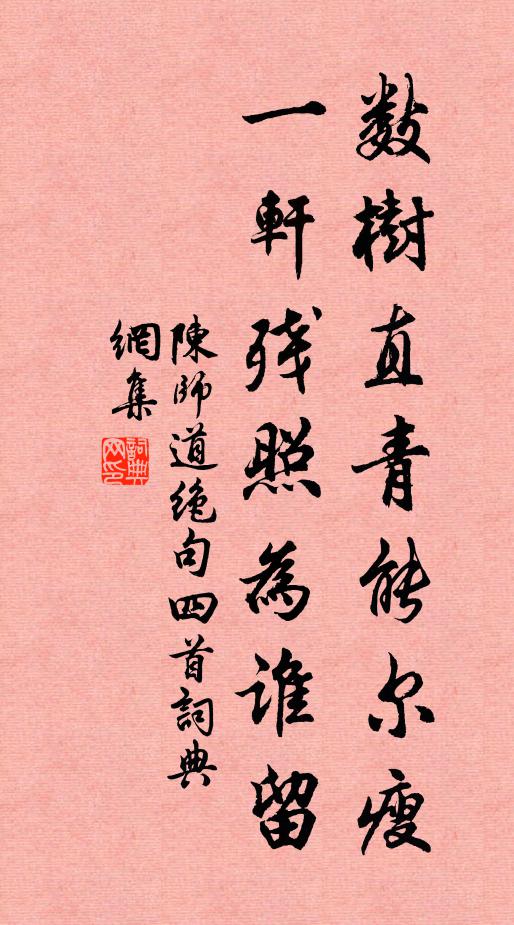 数樹直青能尔瘦
一軒残照為誰留
陳師道絶句四首詞典
網集
詞典
网印